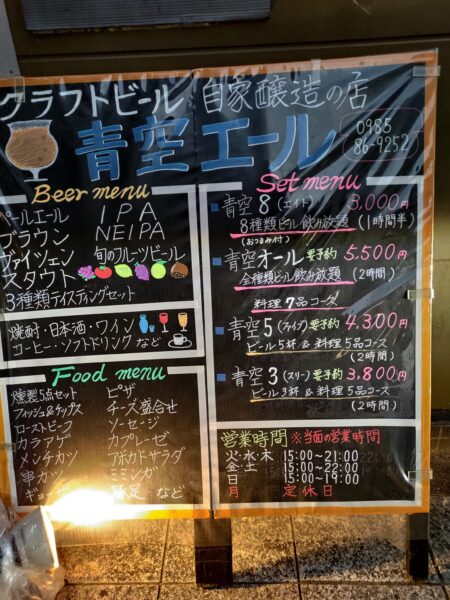 クラフトビール 自家醸造の店
青空エール
0985
86-9252
Beer menu
ペールエール IPA
ブラウン NEIPA
ヴァイツェン 旬のフルーツビール
スタウト
3種類テイスティングセット
焼酎・日本酒・ワイン
コーヒー・ソフトドリンク など
Food menu
燻製5点セット ピザ
フィッシュ&チップス チーズ盛合せ
ローストビーフ ソーセージ
カラアゲ カプレーゼ
メンチカツ アボカドサラダ
串カツ ミミンガ
など
Set menu
青空8(エイト) 3,000円
8種類ビール飲み放題(1時間半)
(おつまみ付)
青空オール 要予約 5,500円
全種類ビール飲み放題(2時間)
料理7品コース
青空5(ファイブ)要予約 4,300円
ビール5杯&料理5品コース
(2時間)
青空3(スリー)要予約 3,800円
ビール3杯&料理5品コース
(2時間)
営業時間 ※当面の営業時間
火・水・木 15:00~21:00
金・土 15:00~22:00
日 15:00~19:00
月 定休日